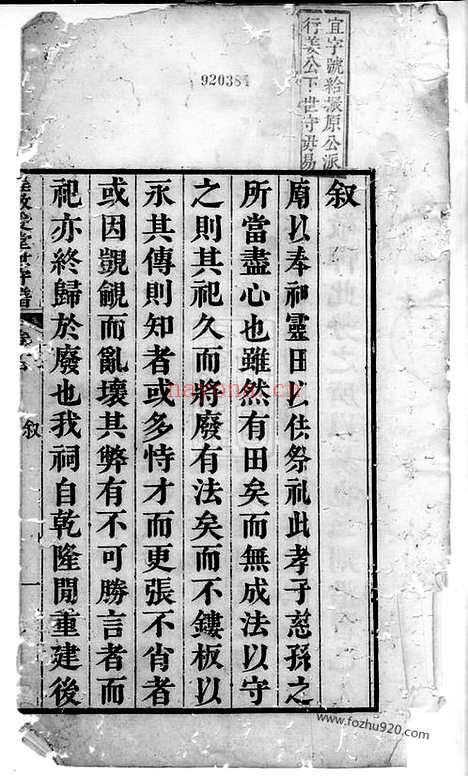 宜字號給振原公派
行姜公下世守毋易
920384
叙
廟以奉神靈田以供祭祀此孝子慈孫之
所當盡心也雖然有田矣而無成法以守
之則其祀久而將廢有法矣而不鏤板以
永其傳則知者或多恃才而更張不肖者
或因覬覦而亂壞其弊有不可勝言者而
祀亦終歸於廢也我祠自乾隆閒重建後
叙
一
national.cn
www.fozhu920.com